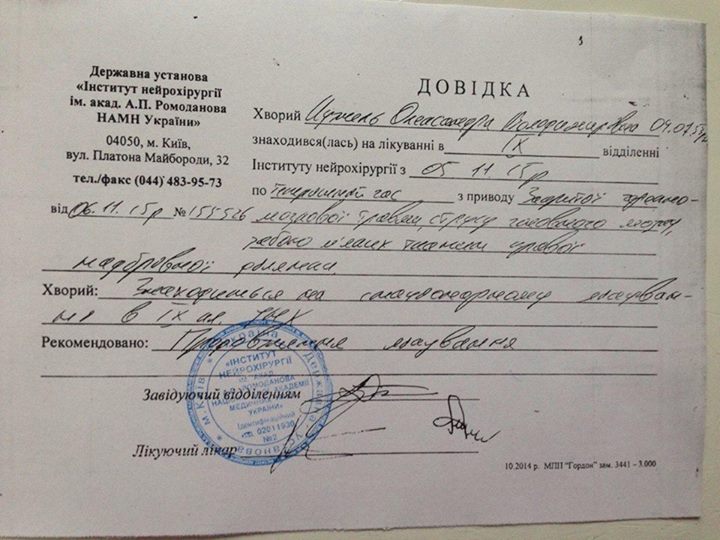 Державна установа
«Інститут нейрохірургії
ім. акад. А.П. Ромоданова
НАМН України»
04050, м. Київ,
вул. Платона Майбороди, 32
тел./факс (044) 483-95-73
від 06.11.15р № 155526
ДОВІДКА
Хворий Олександра Володимирівна
знаходився(лась) на лікуванні в IX відділенні
Інституту нейрохірургії з 05 11 15р
по теперішній час з приводу Закритої черепно-
мозкової травми, струсу головного мозку,
забою м'яких тканин правої
надбрівної ділянки
Хворий: Знаходиться на стаціонарному лікуван-
ня в IX
Рекомендовано: лікування
Завідуючий відділенням
Лікуючий лікар
м. Київ * Україна * Державна установа
«ІНСТИТУТ
НЕЙРОХІРУРГІЇ
ІМ. АКАД.
А.П. РОМОДАНОВА
НАЦІОНАЛЬНОЇ АКАДЕМІЇ
МЕДИЧНИХ
УКРАЇНИ»
Ідентифікаційний
код 02011930
№2
10.2014 р. МПП "Гордон" зам. 3441 - 3.000